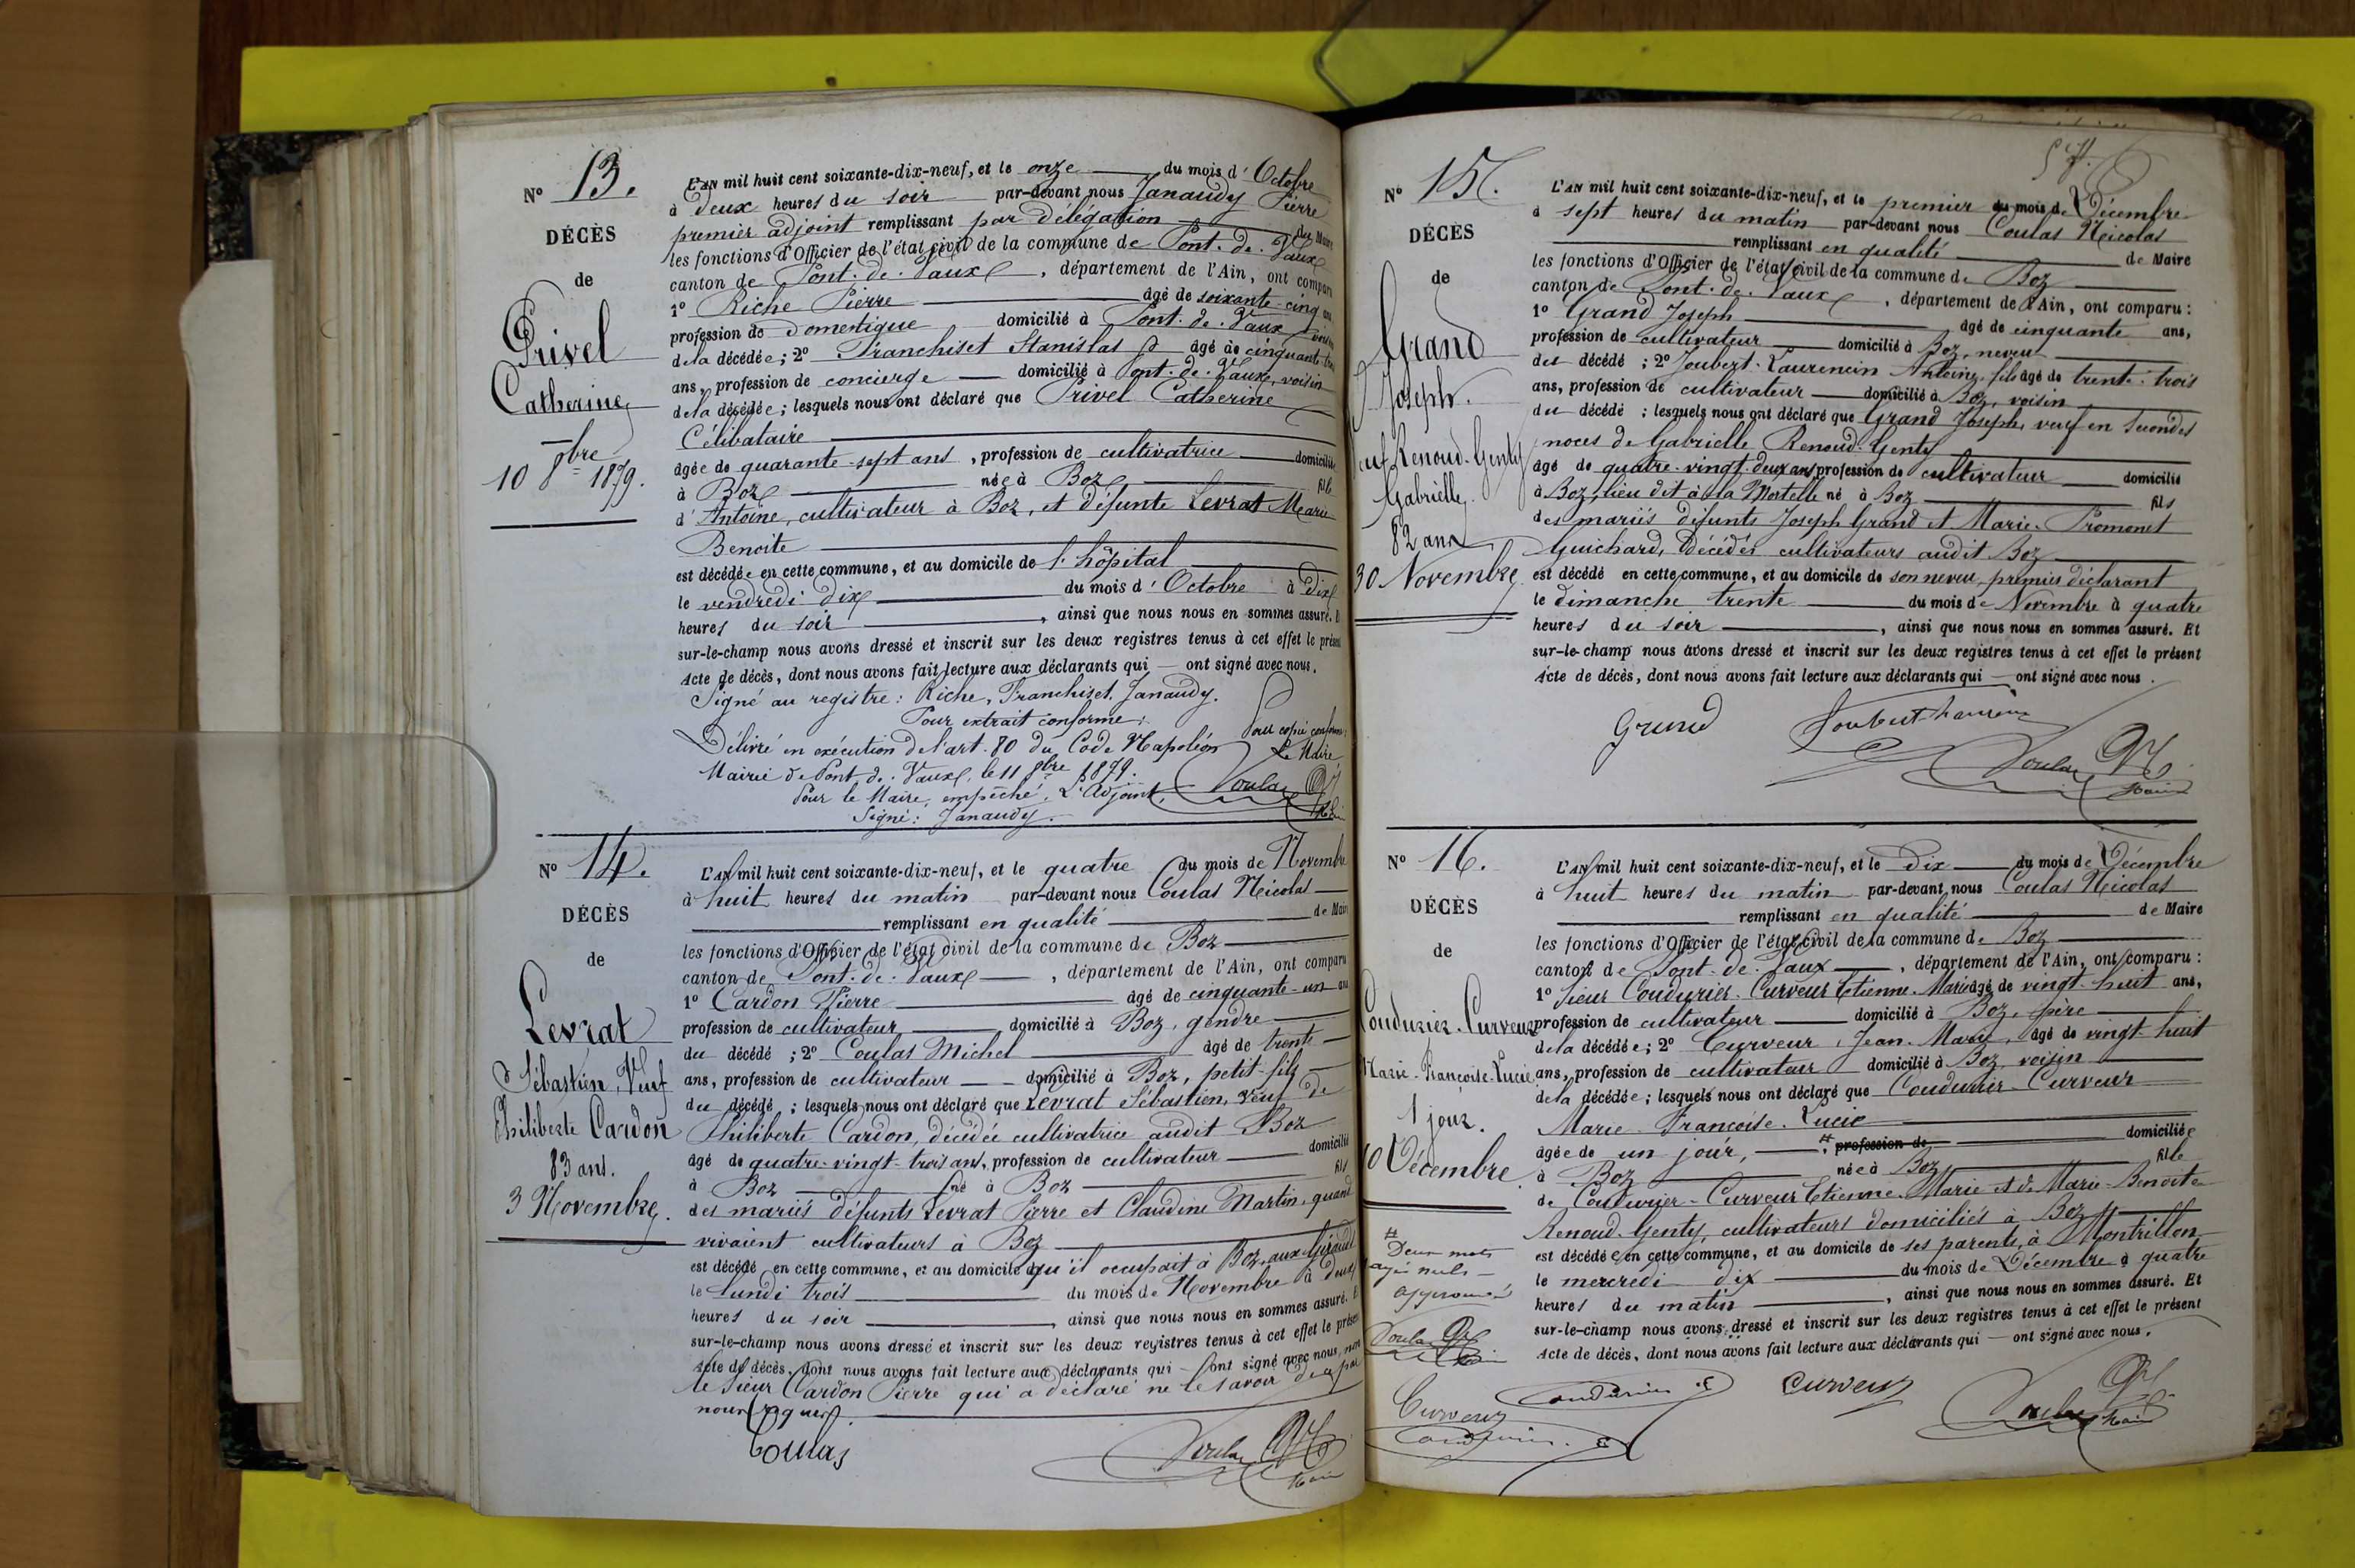 N° 13.
DÉCÈS
de
Privel
Catherine
10 8bre 1879.
L'AN mil huit cent soixante-dix-neuf, et le onze du mois d'Octobre
à deux heures du soir par-devant nous Janaudy Pierre
premier adjoint remplissant par délégation du Maire
les fonctions d'Officier de l'état civil de la commune de Pont-de-Vaux
canton de Pont-de-Vaux, département de l'Ain, ont comparu
1° Riche Pierre âgé de soixante-cinq ans
profession de domestique domicilié à Pont-de-Vaux, voisin
de la décédée; 2° Franchiset Stanislas âgé de cinquante-
ans, profession de concierge domicilié à Pont-de-Vaux, voisin
de la décédée; lesquels nous ont déclaré que Privel Catherine
Célibataire
âgée de quarante-sept ans, profession de cultivatrice domiciliée
à Boz née à Boz fille
d'Antoine, cultivateur à Boz, et défunte Levrat Marie
Benoite
est décédée en cette commune, et au domicile de l'hôpital
le vendredi dix du mois d'Octobre à dix
heures du soir, ainsi que nous nous en sommes assuré. Et
sur-le-champ nous avons dressé et inscrit sur les deux registres tenus à cet effet le présent
Acte de décès, dont nous avons fait lecture aux déclarants qui — ont signé avec nous.
Signé au registre: Riche, Franchiset, Janaudy.
Pour extrait conforme:
Délivré en exécution de l'art. 80 du Code Napoléon
Mairie de Pont-de-Vaux, le 11 8bre 1879.
Pour le Maire, empêché, L'Adjoint,
Signé: Janaudy.
Pour copie conforme:
Le Maire,
Coulas
N° 14.
DÉCÈS
de
Levrat
Sébastien, Veuf
Philiberte Cardon
83 ans.
3 Novembre.
L'AN mil huit cent soixante-dix-neuf, et le quatre du mois de Novembre
à huit heures du matin par-devant nous Coulas Nicolas
remplissant en qualité de Maire
les fonctions d'Officier de l'état civil de la commune de Boz
canton de Pont-de-Vaux, département de l'Ain, ont comparu
1° Cardon Pierre âgé de cinquante-un ans
profession de cultivateur domicilié à Boz, gendre
du décédé; 2° Coulas Michel âgé de trente
ans, profession de cultivateur domicilié à Boz, petit-fils
du décédé; lesquels nous ont déclaré que Levrat Sébastien, veuf de
Philiberte Cardon, décédée cultivatrice audit Boz
âgé de quatre-vingt-trois ans, profession de cultivateur domicilié
à Boz né à Boz fils
des mariés défunts Levrat Pierre et Claudine Martin, quand
vivaient cultivateurs à Boz
est décédé en cette commune, et au domicile qu'il occupait à Boz, aux Girauds
le lundi trois du mois de Novembre à deux
heures du soir, ainsi que nous nous en sommes assuré. Et
sur-le-champ nous avons dressé et inscrit sur les deux registres tenus à cet effet le présent
Acte de décès, dont nous avons fait lecture aux déclarants qui — ont signé avec nous, non
le sieur Cardon Pierre qui a déclaré ne le savoir de ce par
nous requis.
Coulas
Coulas
Maire
N° 15.
DÉCÈS
de
Grand
Joseph.
veuf Renoud-Genty
Gabrielle.
82 ans
30 Novembre.
L'AN mil huit cent soixante-dix-neuf, et le premier du mois de Décembre
à sept heures du matin par-devant nous Coulas Nicolas
remplissant en qualité de Maire
les fonctions d'Officier de l'état civil de la commune de Boz
canton de Pont-de-Vaux, département de l'Ain, ont comparu:
1° Grand Joseph âgé de cinquante ans,
profession de cultivateur domicilié à Boz, neveu
du décédé; 2° Joubert-Laurencin Antoine, fils âgé de trente-trois
ans, profession de cultivateur domicilié à Boz, voisin
du décédé; lesquels nous ont déclaré que Grand Joseph, veuf en secondes
noces de Gabrielle Renoud-Genty
âgé de quatre-vingt-deux ans profession de cultivateur domicilié
à Boz, lieu dit à la Mortelle né à Boz fils
des mariés défunts Joseph Grand et Marie Promonet
Guichard, décédés cultivateurs audit Boz
est décédé en cette commune, et au domicile de son neveu, premier déclarant
le dimanche trente du mois de Novembre à quatre
heures du soir, ainsi que nous nous en sommes assuré. Et
sur-le-champ nous avons dressé et inscrit sur les deux registres tenus à cet effet le présent
Acte de décès, dont nous avons fait lecture aux déclarants qui — ont signé avec nous.
Grand
Joubert-Laurencin
Coulas
Maire
N° 16.
DÉCÈS
de
Coudurier-Curveur
Marie-Françoise-Lucie
1 jour.
10 Décembre.
L'AN mil huit cent soixante-dix-neuf, et le dix du mois de Décembre
à huit heures du matin par-devant nous Coulas Nicolas
remplissant en qualité de Maire
les fonctions d'Officier de l'état civil de la commune de Boz
canton de Pont-de-Vaux, département de l'Ain, ont comparu:
1° Sieur Coudurier-Curveur Etienne-Marie âgé de vingt-huit ans,
profession de cultivateur domicilié à Boz, père
de la décédée; 2° Curveur Jean-Marie, âgé de vingt-huit
ans, profession de cultivateur domicilié à Boz, voisin
de la décédée; lesquels nous ont déclaré que Coudurier-Curveur
Marie-Françoise-Lucie
âgée de un jour, profession de domiciliée
à Boz née à Boz fille
de Coudurier-Curveur Etienne-Marie et de Marie-Benoite
Renoud-Genty, cultivateurs domiciliés à Boz
est décédée en cette commune, et au domicile de ses parents, à Montrillon
le mercredi dix du mois de Décembre à quatre
heures du matin, ainsi que nous nous en sommes assuré. Et
sur-le-champ nous avons dressé et inscrit sur les deux registres tenus à cet effet le présent
Acte de décès, dont nous avons fait lecture aux déclarants qui — ont signé avec nous.
Deux mots
rayés nuls
approuvés
Coulas
Maire
Curveur
Coudurier E
Coudurier E
Curveur
Coulas
Maire